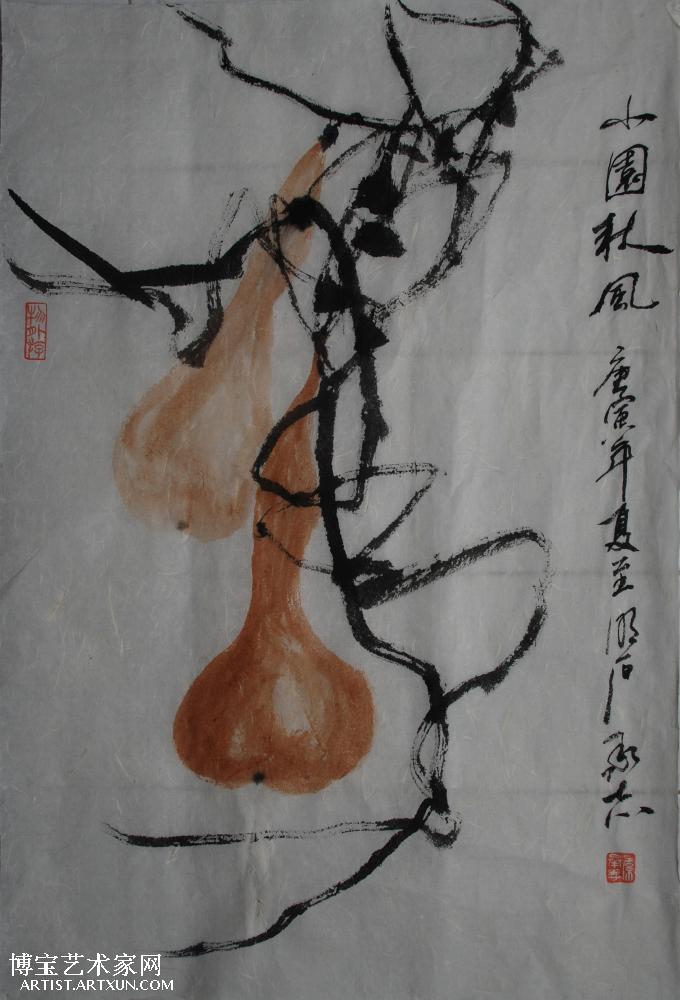 小園秋風 庚寅年夏至
博宝艺术家网
ARTIST.ARTXUN.COM